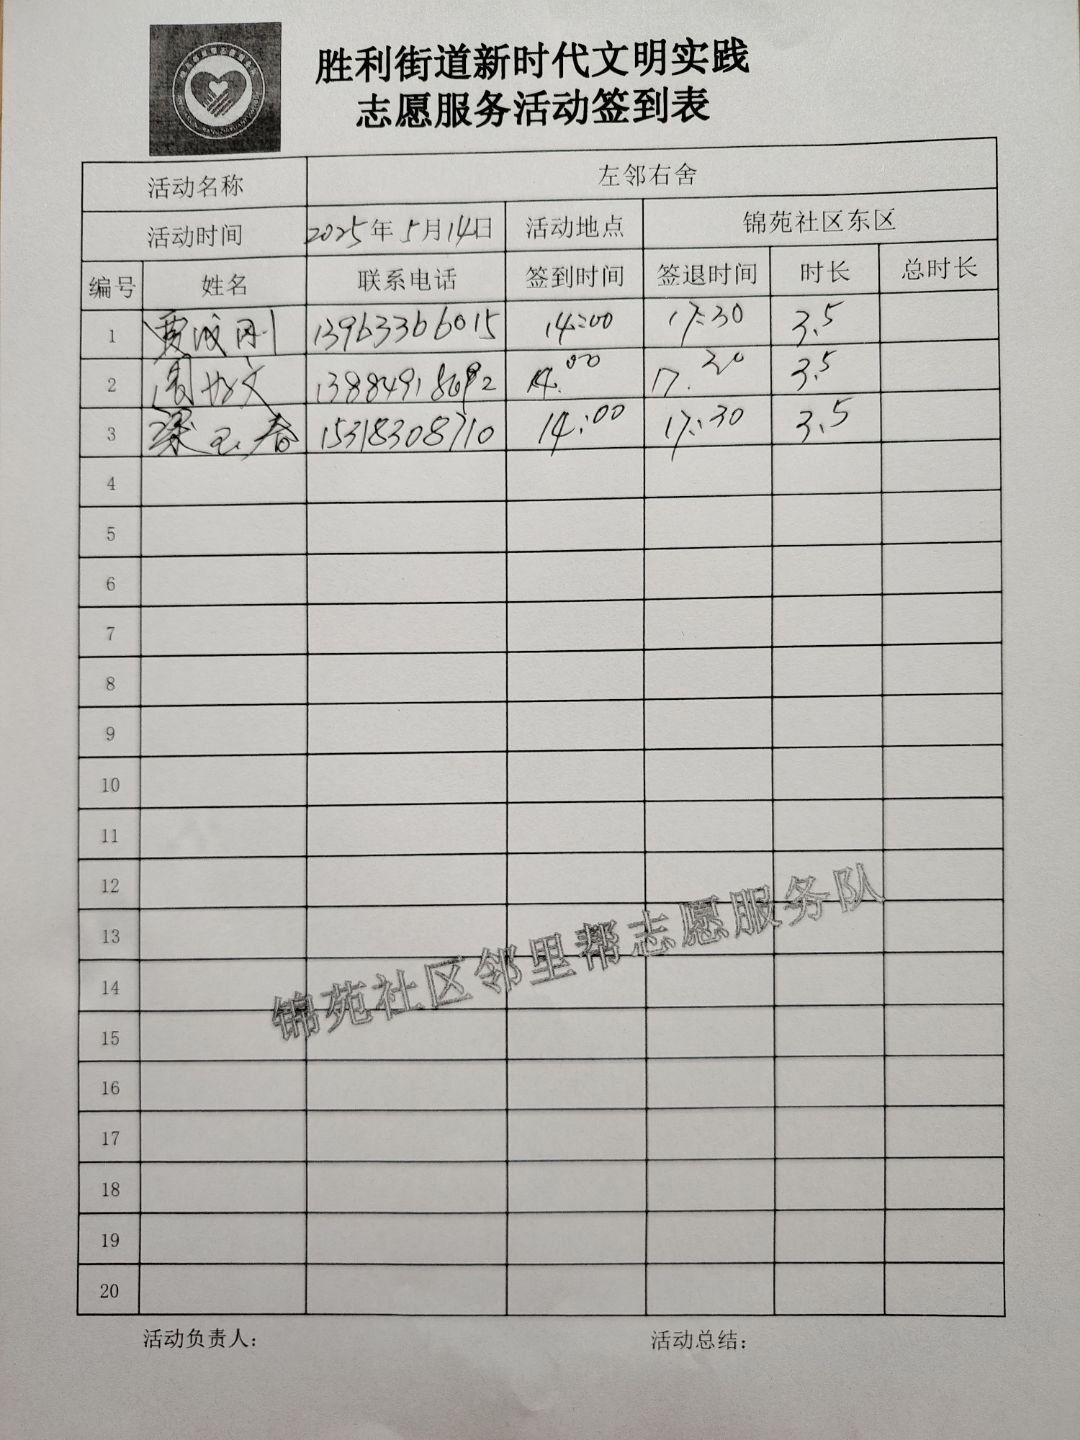 胜利街道新时代文明实践
志愿服务活动签到表
活动名称 左邻右舍
活动时间 2025年5月14日 活动地点 锦苑社区东区
编号 姓名 联系电话 签到时间 签退时间 时长 总时长
1 贾成刚 13963366015 14:00 17:30 3.5
2 周 文 14:00 17:30 3.5
3 梁玉春 15318308710 14:00 17:30 3.5
4
5
6
7
8
9
10
11
12
13
14
15
16
17
18
19
20
锦苑社区邻里帮志愿服务队
活动负责人: 活动总结: